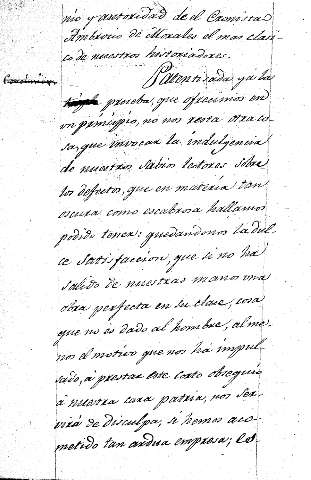 nio y autoridad de el Cronista
Ambrosio de Morales el mas clasi-
co de nuestros historiadores.
Conclusion
Patentizada ya la
prueba, que ofrecimos en
un principio, no nos resta otra co-
sa, que invocar la indulgencia
de nuestros sabios lectores sobre
los defectos, que en materia tan
escura como escabrosa hallamos
podido tener: quedandonos la dul-
ce satisfaccion, que si no ha
salido de nuestras manos una
obra perfecta en su clase, cosa
que no és dado al hombre, alme-
nos el motivo que nos há impul-
sado, á prestar este corto obsequio
á nuestra cara patria, nos ser-
virá de disculpa, si hemos aco-
metido tan ardua empresa; los